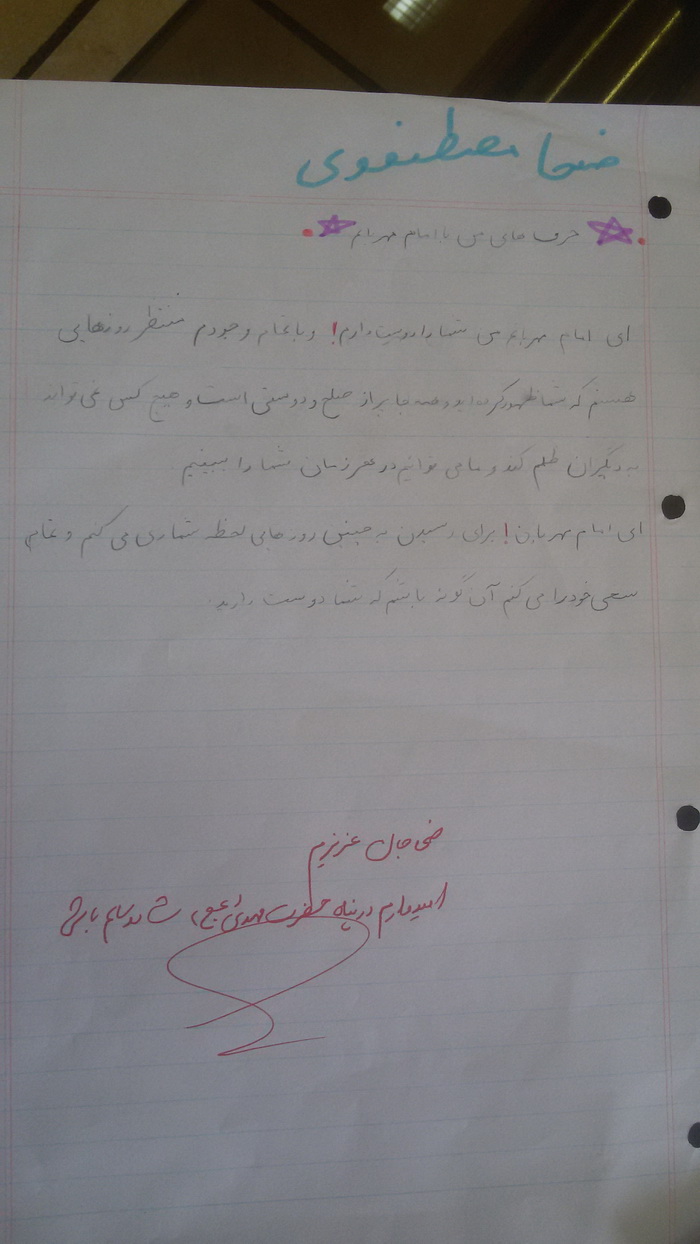 ضحا مصطفوی
حرف های من با امام مهربانم
ای امام مهربانم من شما را دوست دارم! و با تمام وجودم منتظر روزهایی
هستم که شما ظهور کرده اید و همه جا پر از صلح و دوستی است و هیچ کس نمی تواند
به دیگران ظلم کند و ما می توانیم در هر زمان شما را ببینیم
ای امام مهربان! برای رسیدن به چنین روز هایی لحظه شماری می کنم و تمام
سعی خود را می کنم آن گونه باشم که شما دوست دارید.
ضحی جان عزیزم
امیدوارم در پناه حضرت مهدی (عج) شاد و سالم باشی